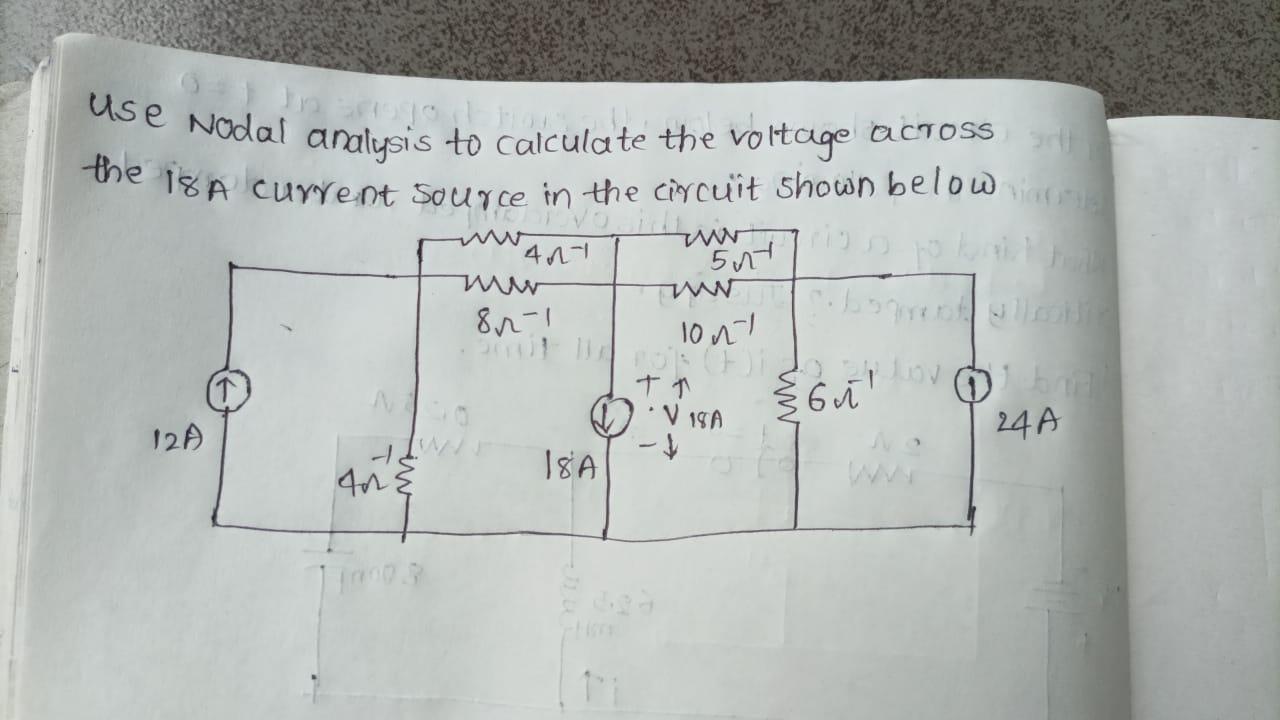 use Nodal analysis to calculate the voltage across
the 18A current source in the circuit shown below
4Ω⁻¹
5Ω⁻¹
8Ω⁻¹
10Ω⁻¹
12A
4Ω⁻¹
18A
+
V 18A
-
6Ω⁻¹
24A